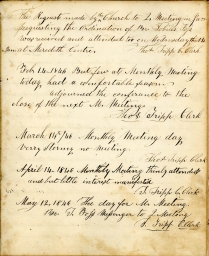 The Request made by the Church to Q. Meeting in
requesting the Ordination of Bro
was received and attended to on Wednesday the
at Meredith Centre, Thos Tripp C. Clerk
Feb 14. 1846 But few at Monthly Meeting
today, had a comfortable season
adjourned the conference to the
close of the next Mo. Meeting
Thos Tripp Clerk
March 14th/46 Monthly Meeting day
very stormy no meeting.
Thos Tripp Clerk
April 14. 1846 Monthly Meeting thinly attended
and but little interest manifested
T. Tripp C. Clerk
May 12, 1846 The day for Mo. Meeting
Bro. Messenger to Q. Meeting
T. Tripp C. Clerk